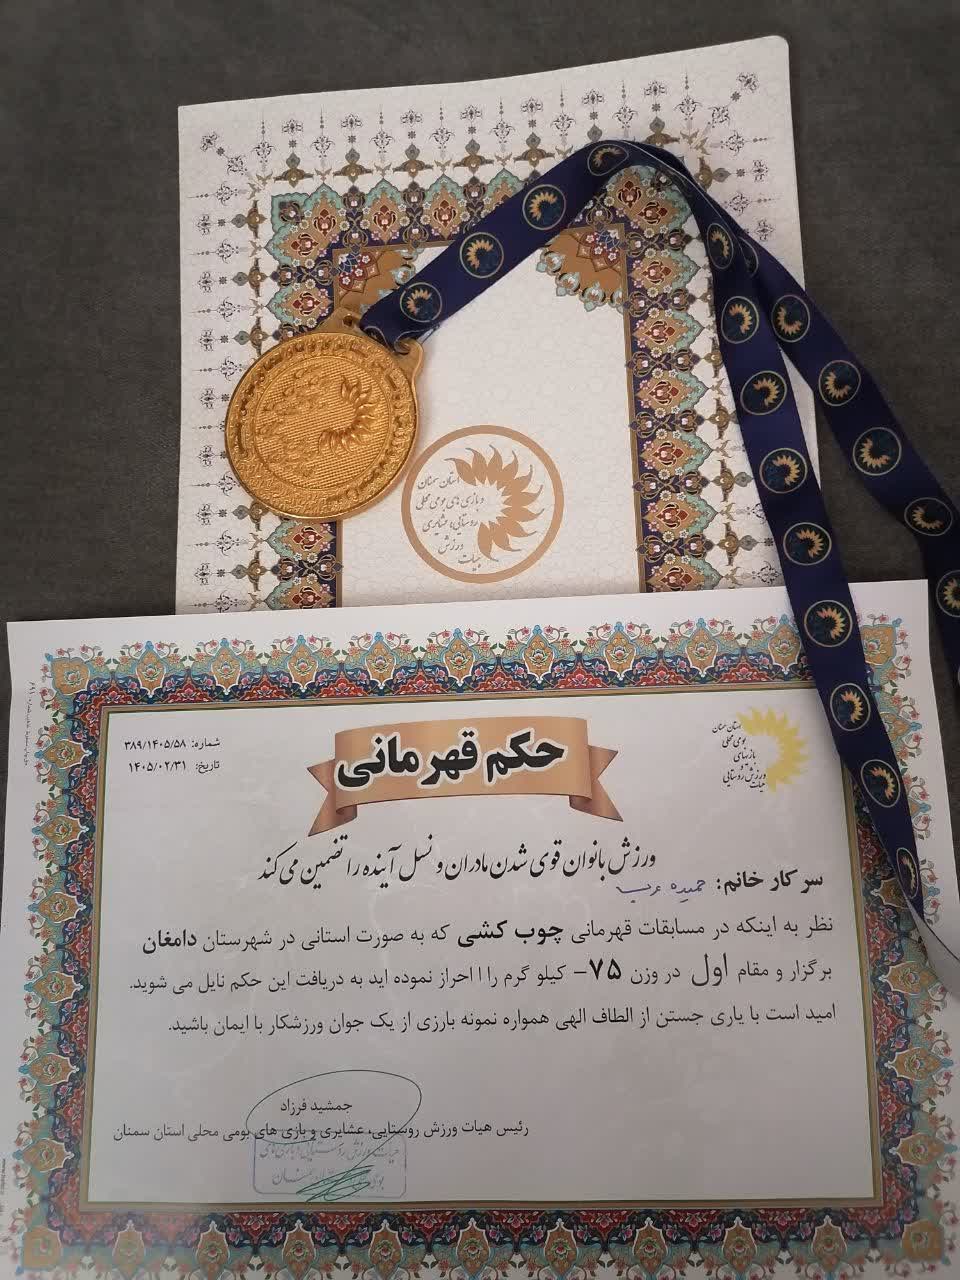 استان سمنان
و بازی های بومی محلی
روستایی، عشایری
ورزش
هیات
شماره: ۳۸۹/۱۴۰۵/۵۸
تاریخ: ۱۴۰۵/۰۲/۳۱
حکم قهرمانی
استان سمنان
بومی محلی
بازیهای
و
ورزش روستایی
هیات
ورزش بانوان قوی شدن مادران و نسل آینده را تضمین می کند
سرکار خانم: حمیده عرب
نظر به اینکه در مسابقات قهرمانی چوب کشی که به صورت استانی در شهرستان دامغان
برگزار و مقام اول در وزن ۷۵- کیلو گرم را احراز نموده اید به دریافت این حکم نایل می شوید.
امید است با یاری جستن از الطاف الهی همواره نمونه بارزی از یک جوان ورزشکار با ایمان باشید.
جمشید فرزاد
رئیس هیات ورزش روستایی، عشایری و بازی های بومی محلی استان سمنان
هیات ورزش روستایی و بازی های
بومی محلی استان سمنان